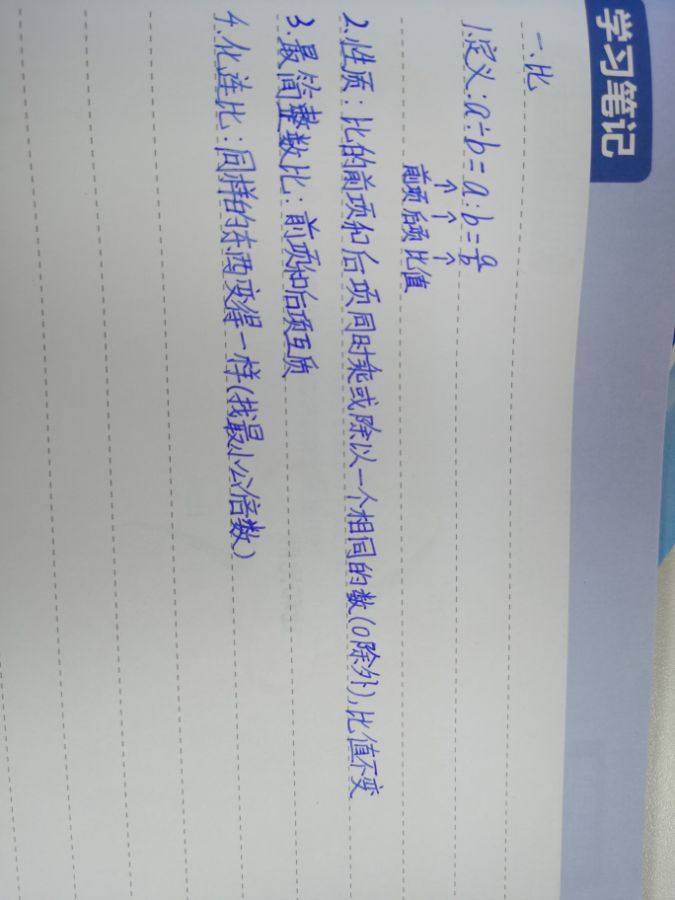 学习笔记
一.比
1.定义:a÷b=a:b=a/b
↑ ↑ ↑
前项 后项 比值
2.性质:比的前项和后项同时乘或除以一个相同的数(0除外),比值不变
3.最简整数比:前项和后项互质
4.化连比:同样的东西变得一样(找最小公倍数)